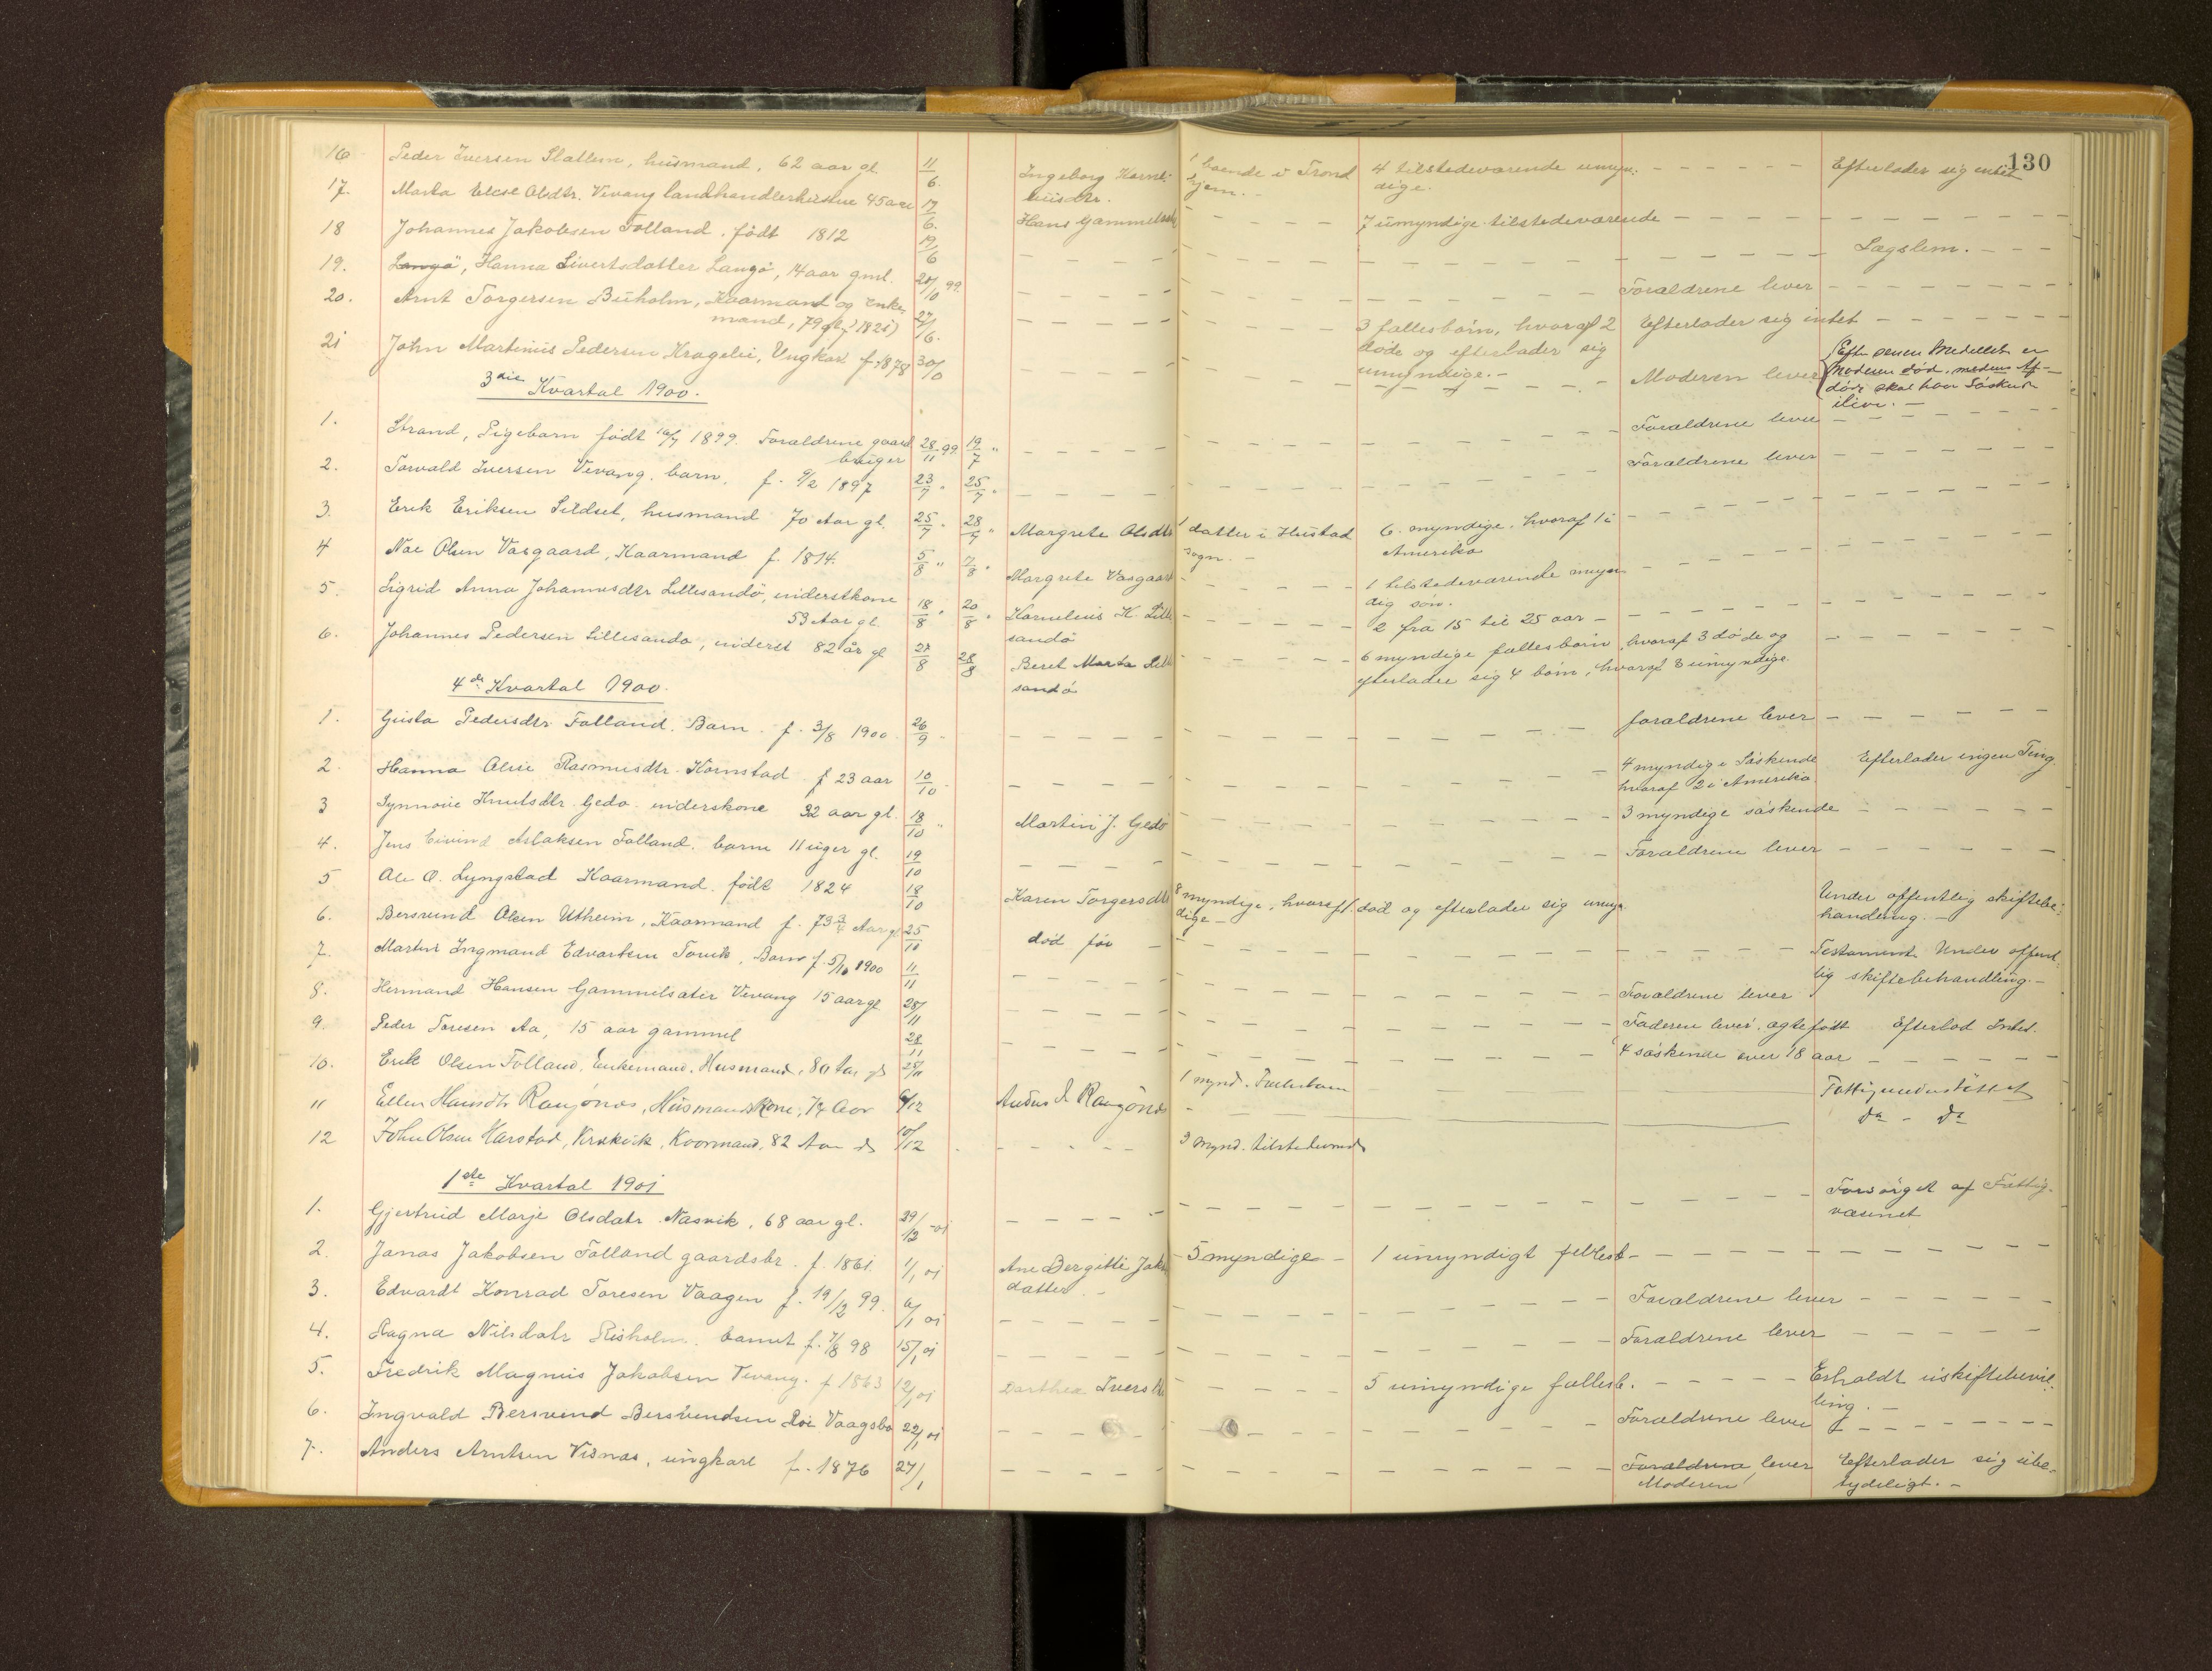 130
16 Peder Iversen Slatlem, husmand, 62 aar gl. 11/6. Ingeborg Korne- 1 boende i Trond 4 tilstedeværende umyn- Efterlader sig intet
liusdtr. hjem. - dige.
17. Marta Else Olsdtr. Vevang landhandlerhustrue 45 aar 17/6. Hans Gammelsæter 7 umyndige tilstedeværende
18 Johannes Jakobsen Folland. født 1812 19/6 Lægslem.
19. Langö, Hanna Sivertsdatter Langö, 14 aar gml. 20/10 99. Forældrene lever
20. Arnt Torgersen Buholm, Kaarmand og enke- 27/6. 3 fællesbörn, hvoraf 2 Efterlader sig intet
mand, 79 gl. (1821) døde og efterlader sig
umyndige. -
21 John Martinus Pedersen Kragelie, Ungkar f. 1878 30/ Moderen lever Efter senere Meddelelse er
Moderen död, medens Af-
døde skal have Söskende
ilive. -
3die Kvartal 1900.
1. Strand, Pigebarn født 16/7 1899. Forældrene gaard 28/11 99 19/7 " Forældrene lever
bruger
2. Torvald Iversen Vevang. barn. f. 9/2 1897 23/7 " 25/7 " Forældrene lever
3. Erik Eriksen Sildset, husmand 70 Aar gl. 25/7 " 28/7 " Margrete Olsdtr 1 datter i Hustad 6. myndige. hvoraf 1 i
sogn. - Amerika
4 Noe Olsen Vasgaard, Kaarmand f. 1814. 5/8 " 7/8 " Margrete Vasgaard 1 tilstedeværende myn-
dig sön.
5. Sigrid Anna Johannesdtr Lillesandö, inderstkone 18/8 " 20/8 " Kornelius K. Lille 2 fra 15 til 25 aar
53 Aar gl. sandö
6. Johannes Pedersen Lillesandö, inderst 82 år gl 27/8 28/8 Beret Marta Lille 6 myndige fællesbörn, hvoraf 3 döde og
sandö efterlader sig 4 börn, hvoraf 3 umyndige.
4de Kvartal 1900.
1. Gusta Pedersdtr Folland. Barn. f. 3/8 1900. 26/9 forældrene lever
2. Hanna Olsie Rasmusdtr. Kornstad f 23 aar 10/10 4 myndige Söskende Efterlader ingen Ting.
hvoraf 2 i Amerika
3 Synnöve Knutsdtr. Gedö. inderskone 32 aar gl. 18/10 " Martin J. Gedö 3 myndige söskende
4. Jens Eivind Aslaksen Folland. barn 11 uger gl. 19/10 Forældrene lever
5 Ole O. Lyngstad Kaarmand. født 1824 18/10 Karen Torgersdtr 8 myndige, hvoraf 1. död og efterlader sig umyn Under offentlig skiftebe-
dige - handling. -
6. Bersvend Olsen Utheim, Kaarmand f. 73 3/4 Aar gl 25/10 död för Testament. Under offent-
lig skiftebehandling. -
7. Martin Ingmand Edvartsen Torvik, Barn f. 5/10 1900 11/11 Forældrene lever
8. Hermand Hansen Gammelsæter Vevang 15 aar gl 28/11 Faderen lever, ægtefødt Efterlod Intet.
9. Peder Toresen Aa, 15 aar gammel 28/11 4 söskende over 18 aar
10. Erik Olsen Folland, Enkemand, Husmand, 80 Aar gl 25/11 1 mynd. Fællesbarn Fattigunderstöttet
11 Ellen Hansdtr Rangönes, Husmandskone, 74 Aar 6/12 Rangönes do - do
12 John Olsen Harstad, Kraksvik, Kaarmand, 82 Aar gl 10/12 3 mynd. tilstedeværende
1ste Kvartal 1901
1. Gjertrud Marje Olsdatr. Næsvik, 68 aar gl. 29/12 -01 Forsörget af Fattig-
væsenet
2. Janas Jakobsen Folland gaardsbr. f. 1861. 1/1 01 Ane Bergitte Jakobs 5 myndige - 1 umyndigt fællesb-
datter. -
3. Edvardt Konrad Toresen Vaagen f. 19/12 99. 6/1 01 Forældrene lever
4. Ragna Nilsdatr Risholm. barnet f. 7/8 98 15/1 01 Forældrene lever
5. Fredrik Magnus Jakobsen Vevang. f 1863 12/1 01 Dorthea Iversdtr 5 umyndige fællesb. Erholdt uskiftebevil-
ling. -
6. Ingvald Bersvend Bersvendsen Vaagsbö 22/1 01 Forældrene lever
7. Anders Arntsen Visnæs, ungkarl f. 1876 27/1 Forældrene lever Efterlader sig ube-
Moderen tydeligt. -